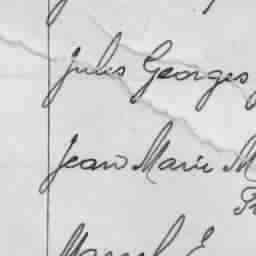 Jules Georges
Jean Marie M
Marcel E